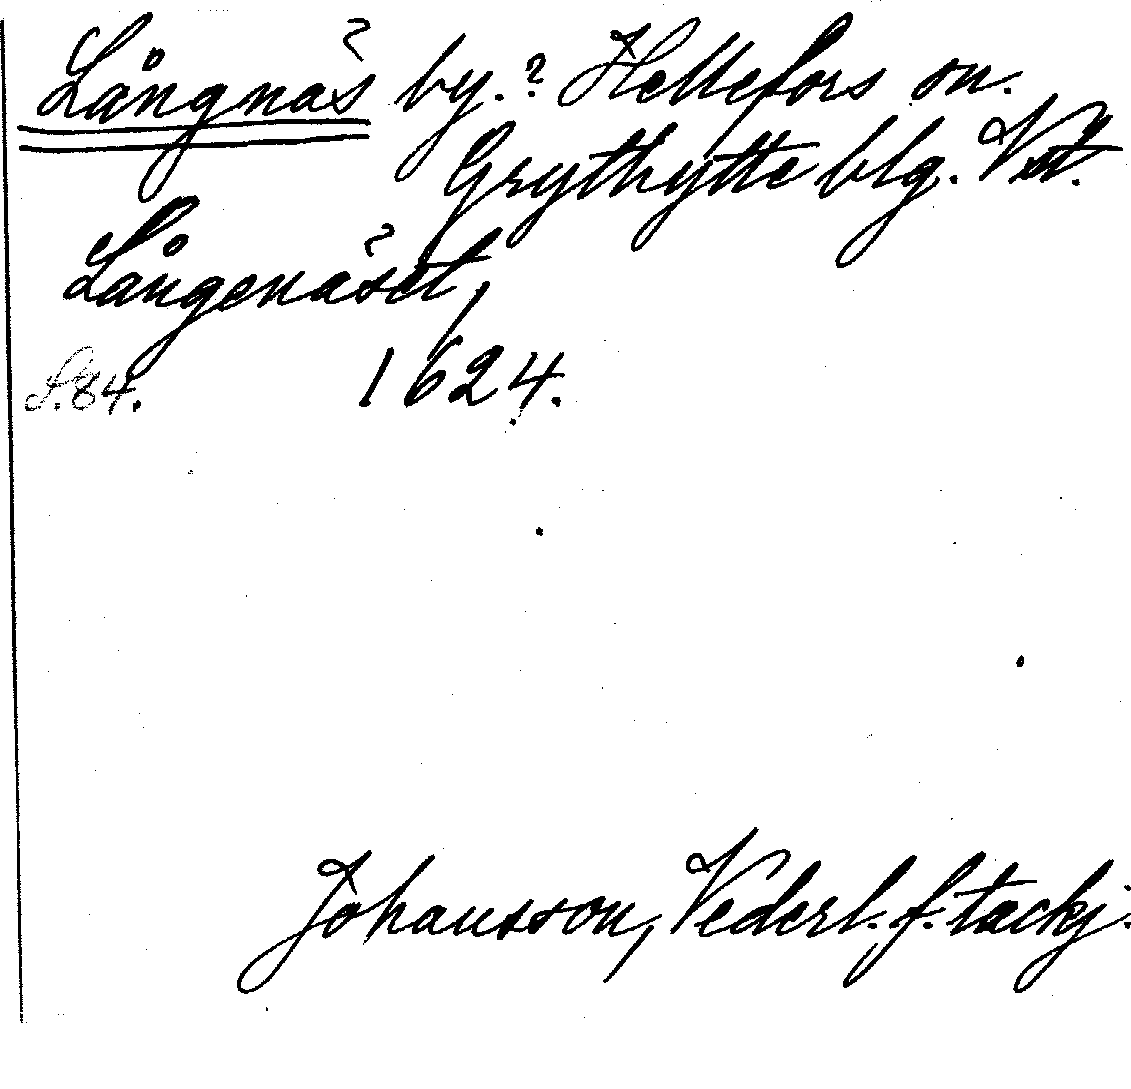 Långnäs by.? Hellefors sn.
Grythytte blg. Vstm.
Långenäset,
S.84. 1624.
Johansson, Vederl. f. tackj.